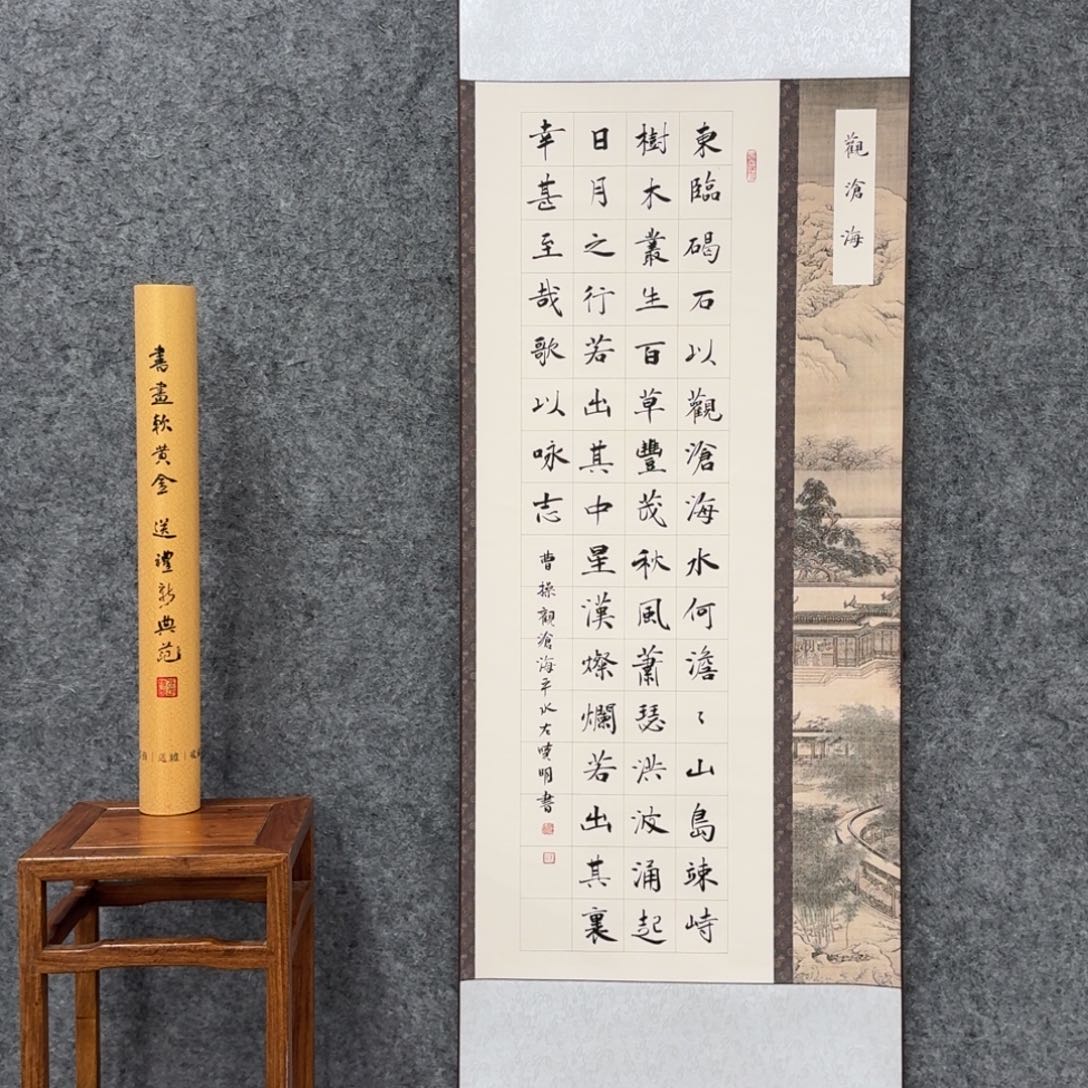 觀滄海
東臨碣石以觀滄海水何澹〻山島竦峙
樹木叢生百草豐茂秋風蕭瑟洪波涌起
日月之行若出其中星漢燦爛若出其裏
幸甚至哉歌以咏志
曹操觀滄海平水左明書
書畫軟黄金 送禮新典范